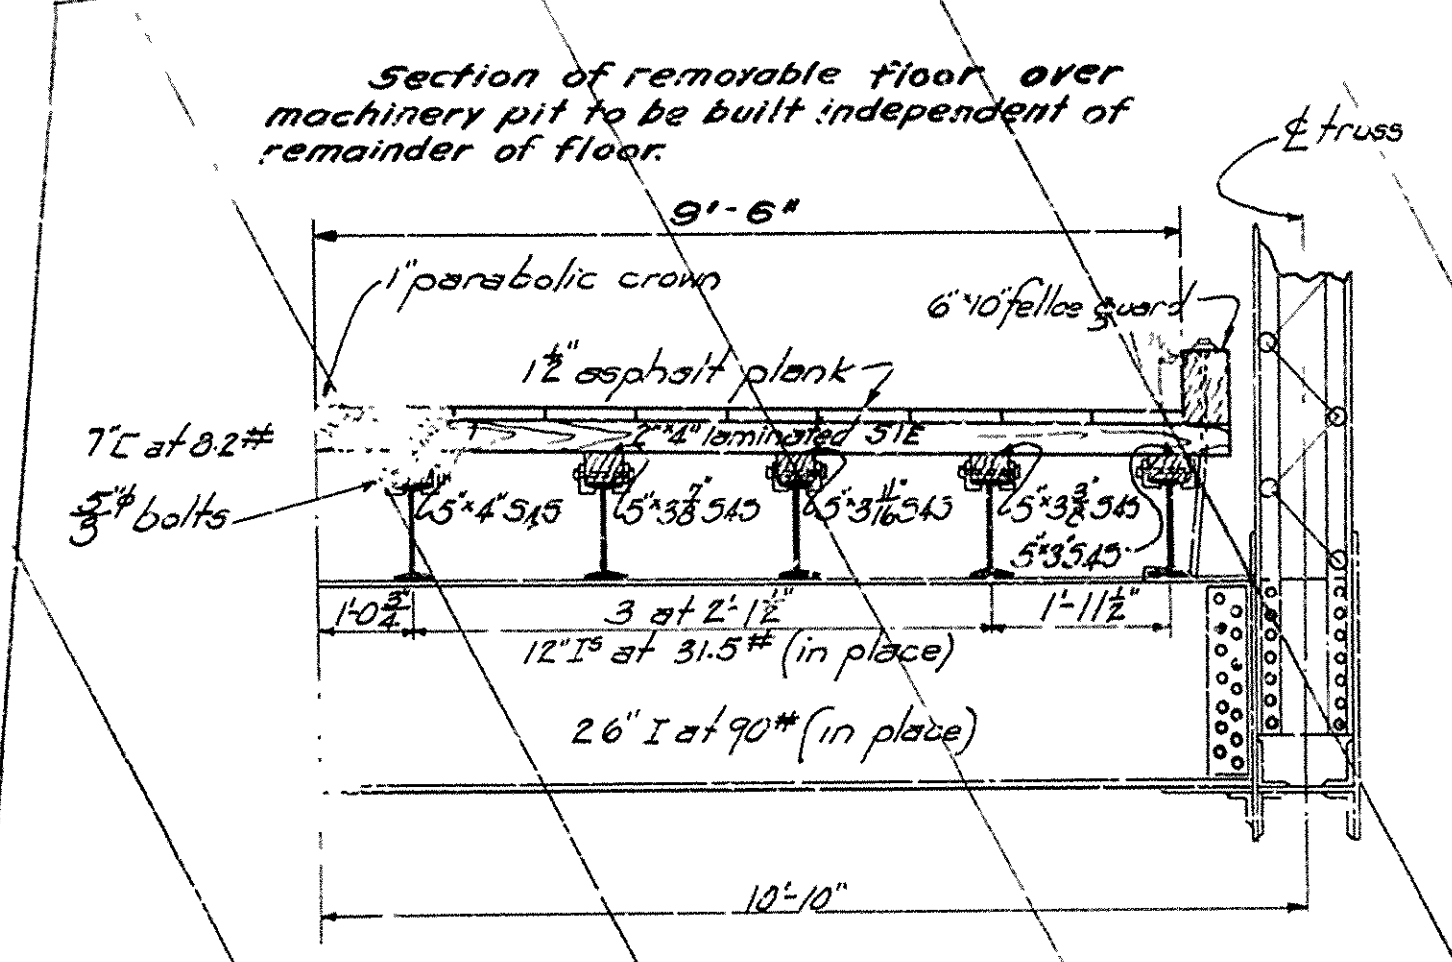 Section of removable floor over
machinery pit to be built independent of
remainder of floor.
℄ truss
9'-6"
1" parabolic crown
6"x10" felloe guard
1 1/2" asphalt plank
7"[ at 8.2#
2"x4" laminated S1E
bolts
5"x4" S4S
5"x3 7/8" S4S
5"x3 11/16" S4S
5"x3 3/8" S4S
5"x3" S4S
1'-0 3/4"
3 at 2'-1 1/2"
1'-11 1/2"
12" Is at 31.5# (in place)
26" I at 90# (in place)
10'-10"